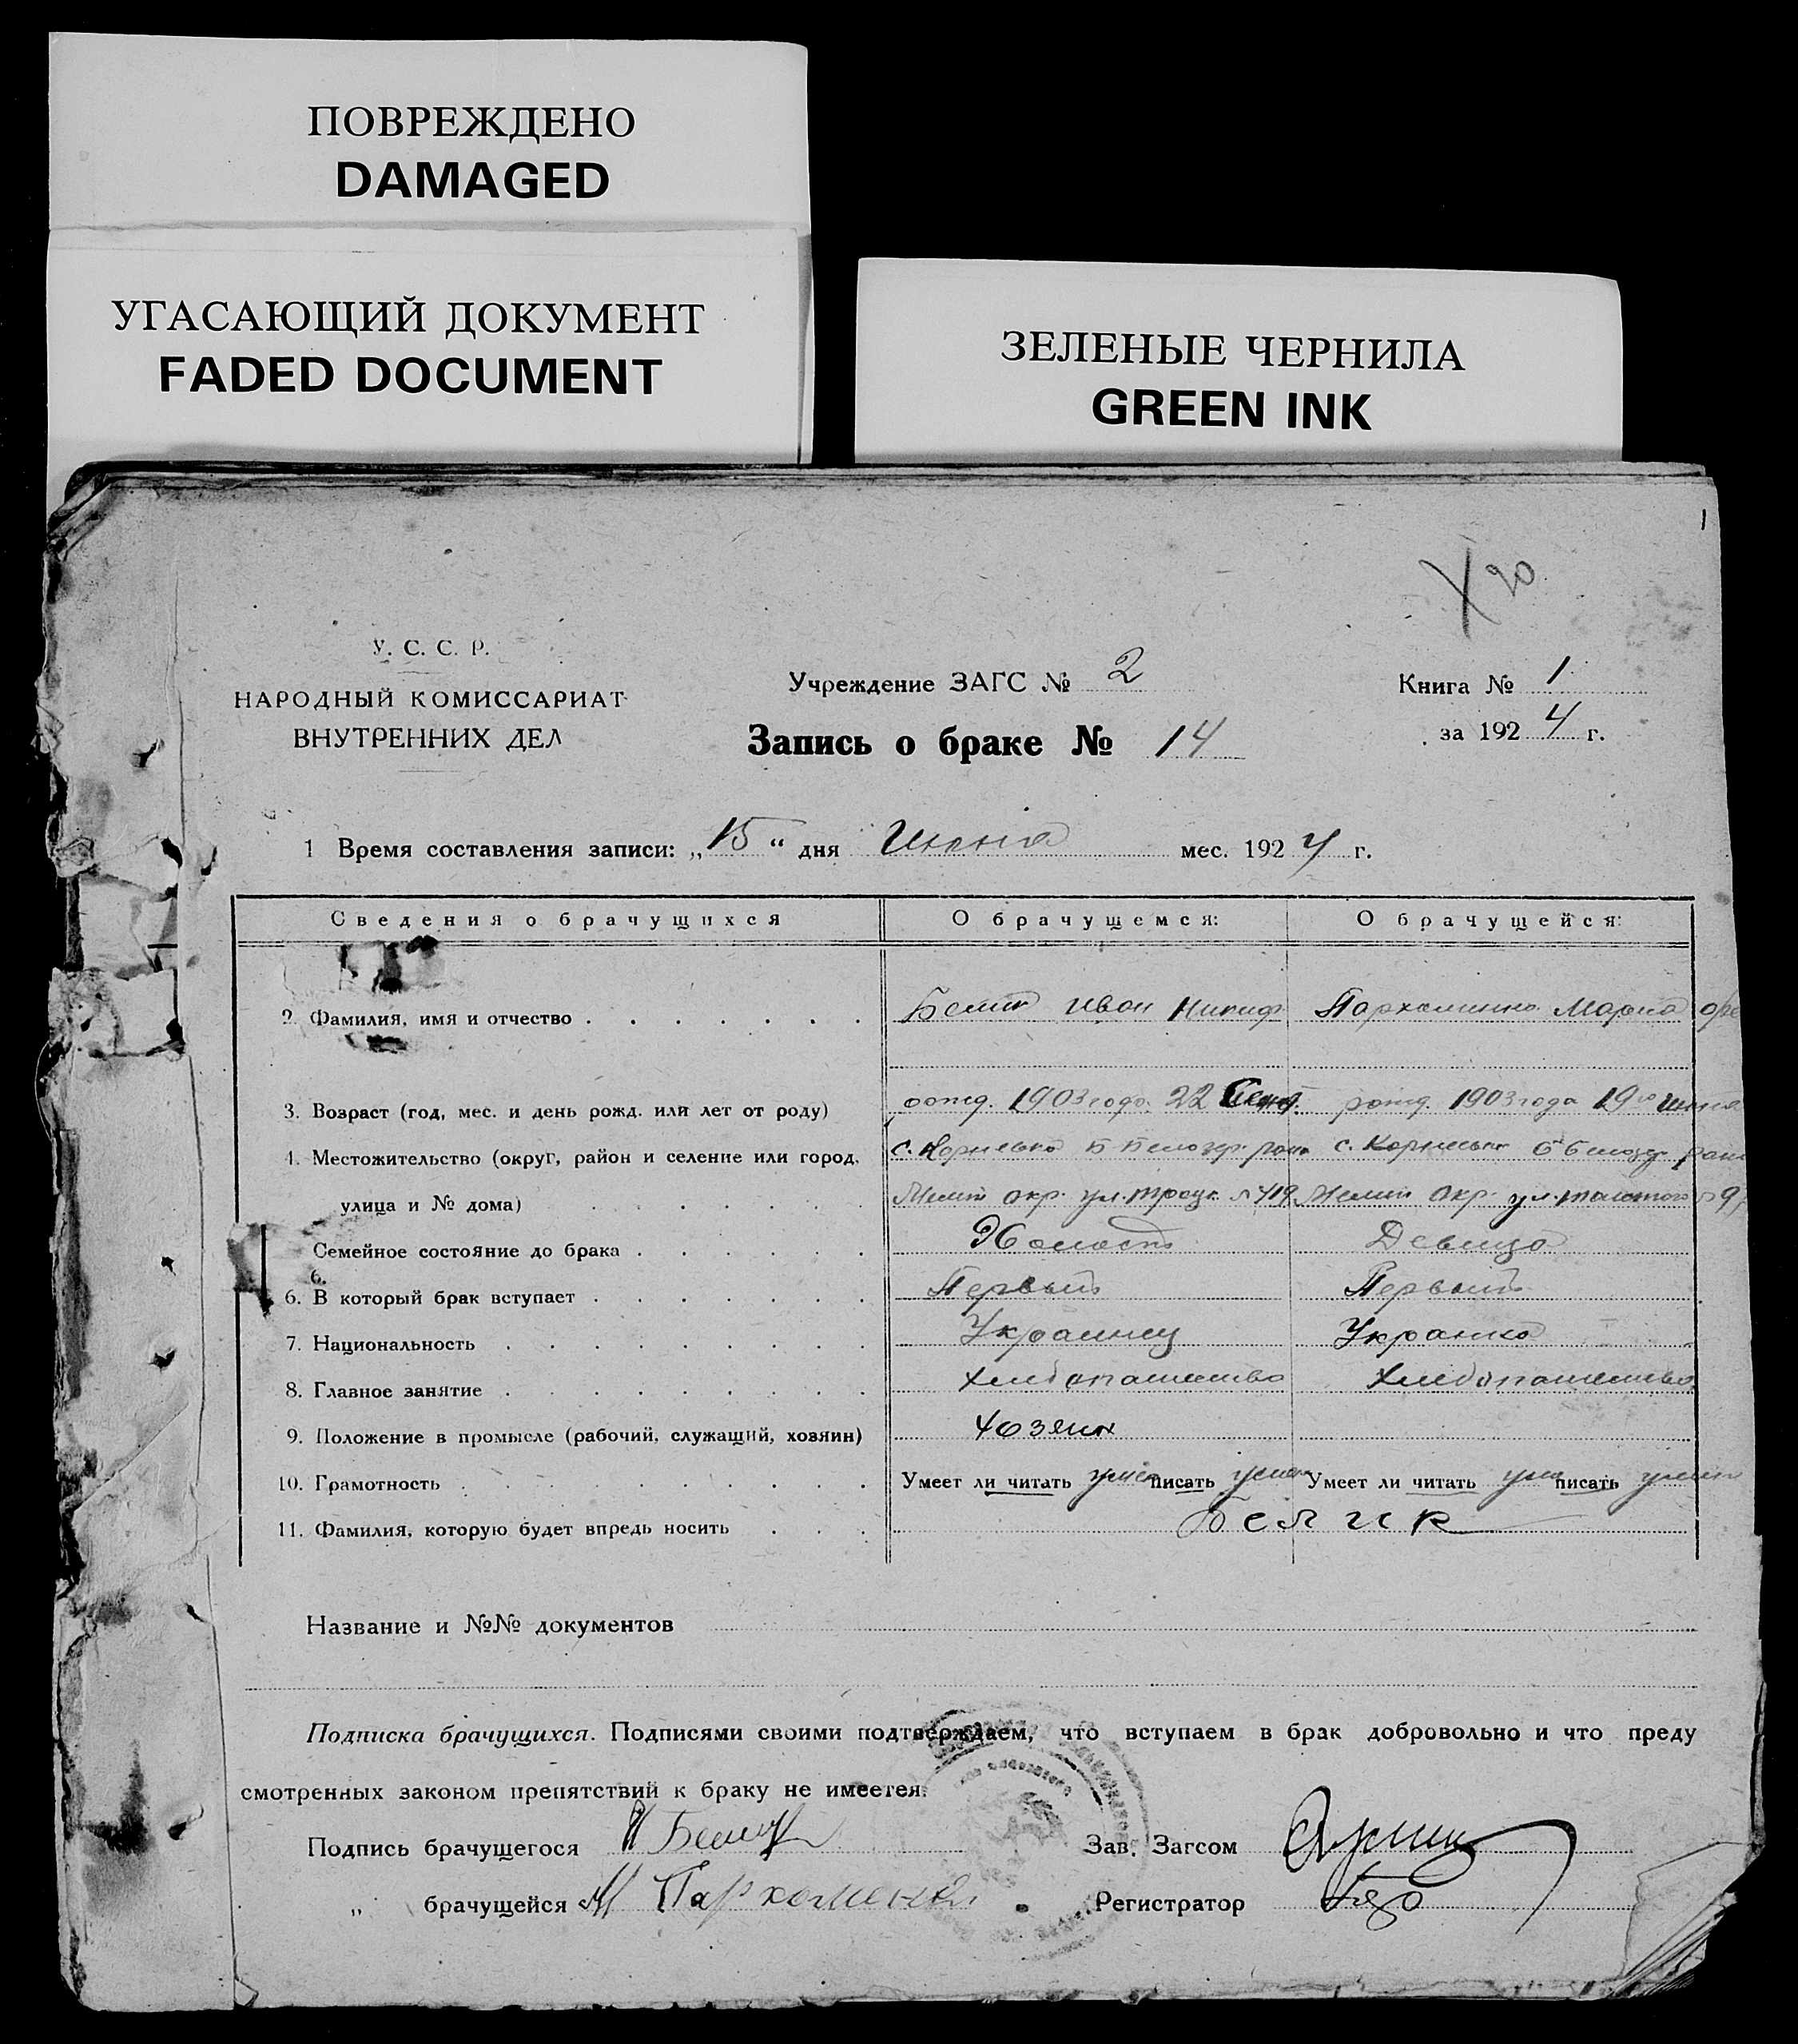 ПОВРЕЖДЕНО
DAMAGED
УГАСАЮЩИЙ ДОКУМЕНТ
FADED DOCUMENT
ЗЕЛЕНЫЕ ЧЕРНИЛА
GREEN INK
1
20
У. С. С. Р.
НАРОДНЫЙ КОМИССАРИАТ
ВНУТРЕННИХ ДЕЛ
Учреждение ЗАГС № 2
Запись о браке № 14
Книга № 1
за 1924 г.
1 Время составления записи: „15“ дня Июня мес. 1924 г.
Сведения о брачущихся О брачущемся: О брачущейся:
2. Фамилия, имя и отчество . . . . . . . Белик Иван Никиф Пархоменко Мария
3. Возраст (год, мес. и день рожд. или лет от роду) рожд. 1903 года 22 Сент. рожд. 1903 года 19го Июня
4. Местожительство (округ, район и селение или город, с. Корнеевка Б-Белозер. райо с. Корнеевка Б-Белозер. райо
улица и № дома) . . . . . . . Мелит окр. ул. Троцк. № 419 Мелит Окр. ул. Толстого № 9
Семейное состояние до брака . . . . . . Холост Девица
6.
6. В который брак вступает . . . . . . . Первый Первый
7. Национальность . . . . . . . . . Украинец Украинка
8. Главное занятие . . . . . . . . . Хлебопашество Хлебопашество
9. Положение в промысле (рабочий, служащий, хозяин) хозяин
10. Грамотность . . . . . . . . . . Умеет ли читать умеет писать умеет Умеет ли читать уме писать умеет
11. Фамилия, которую будет впредь носить . . . Белик
Название и №№ документов
Подписка брачущихся. Подписями своими подтверждаем, что вступаем в брак добровольно и что преду
смотренных законом препятствий к браку не имеется.
Подпись брачущегося И Белик
Зав. Загсом
„ брачущейся М Пархоменко
Регистратор